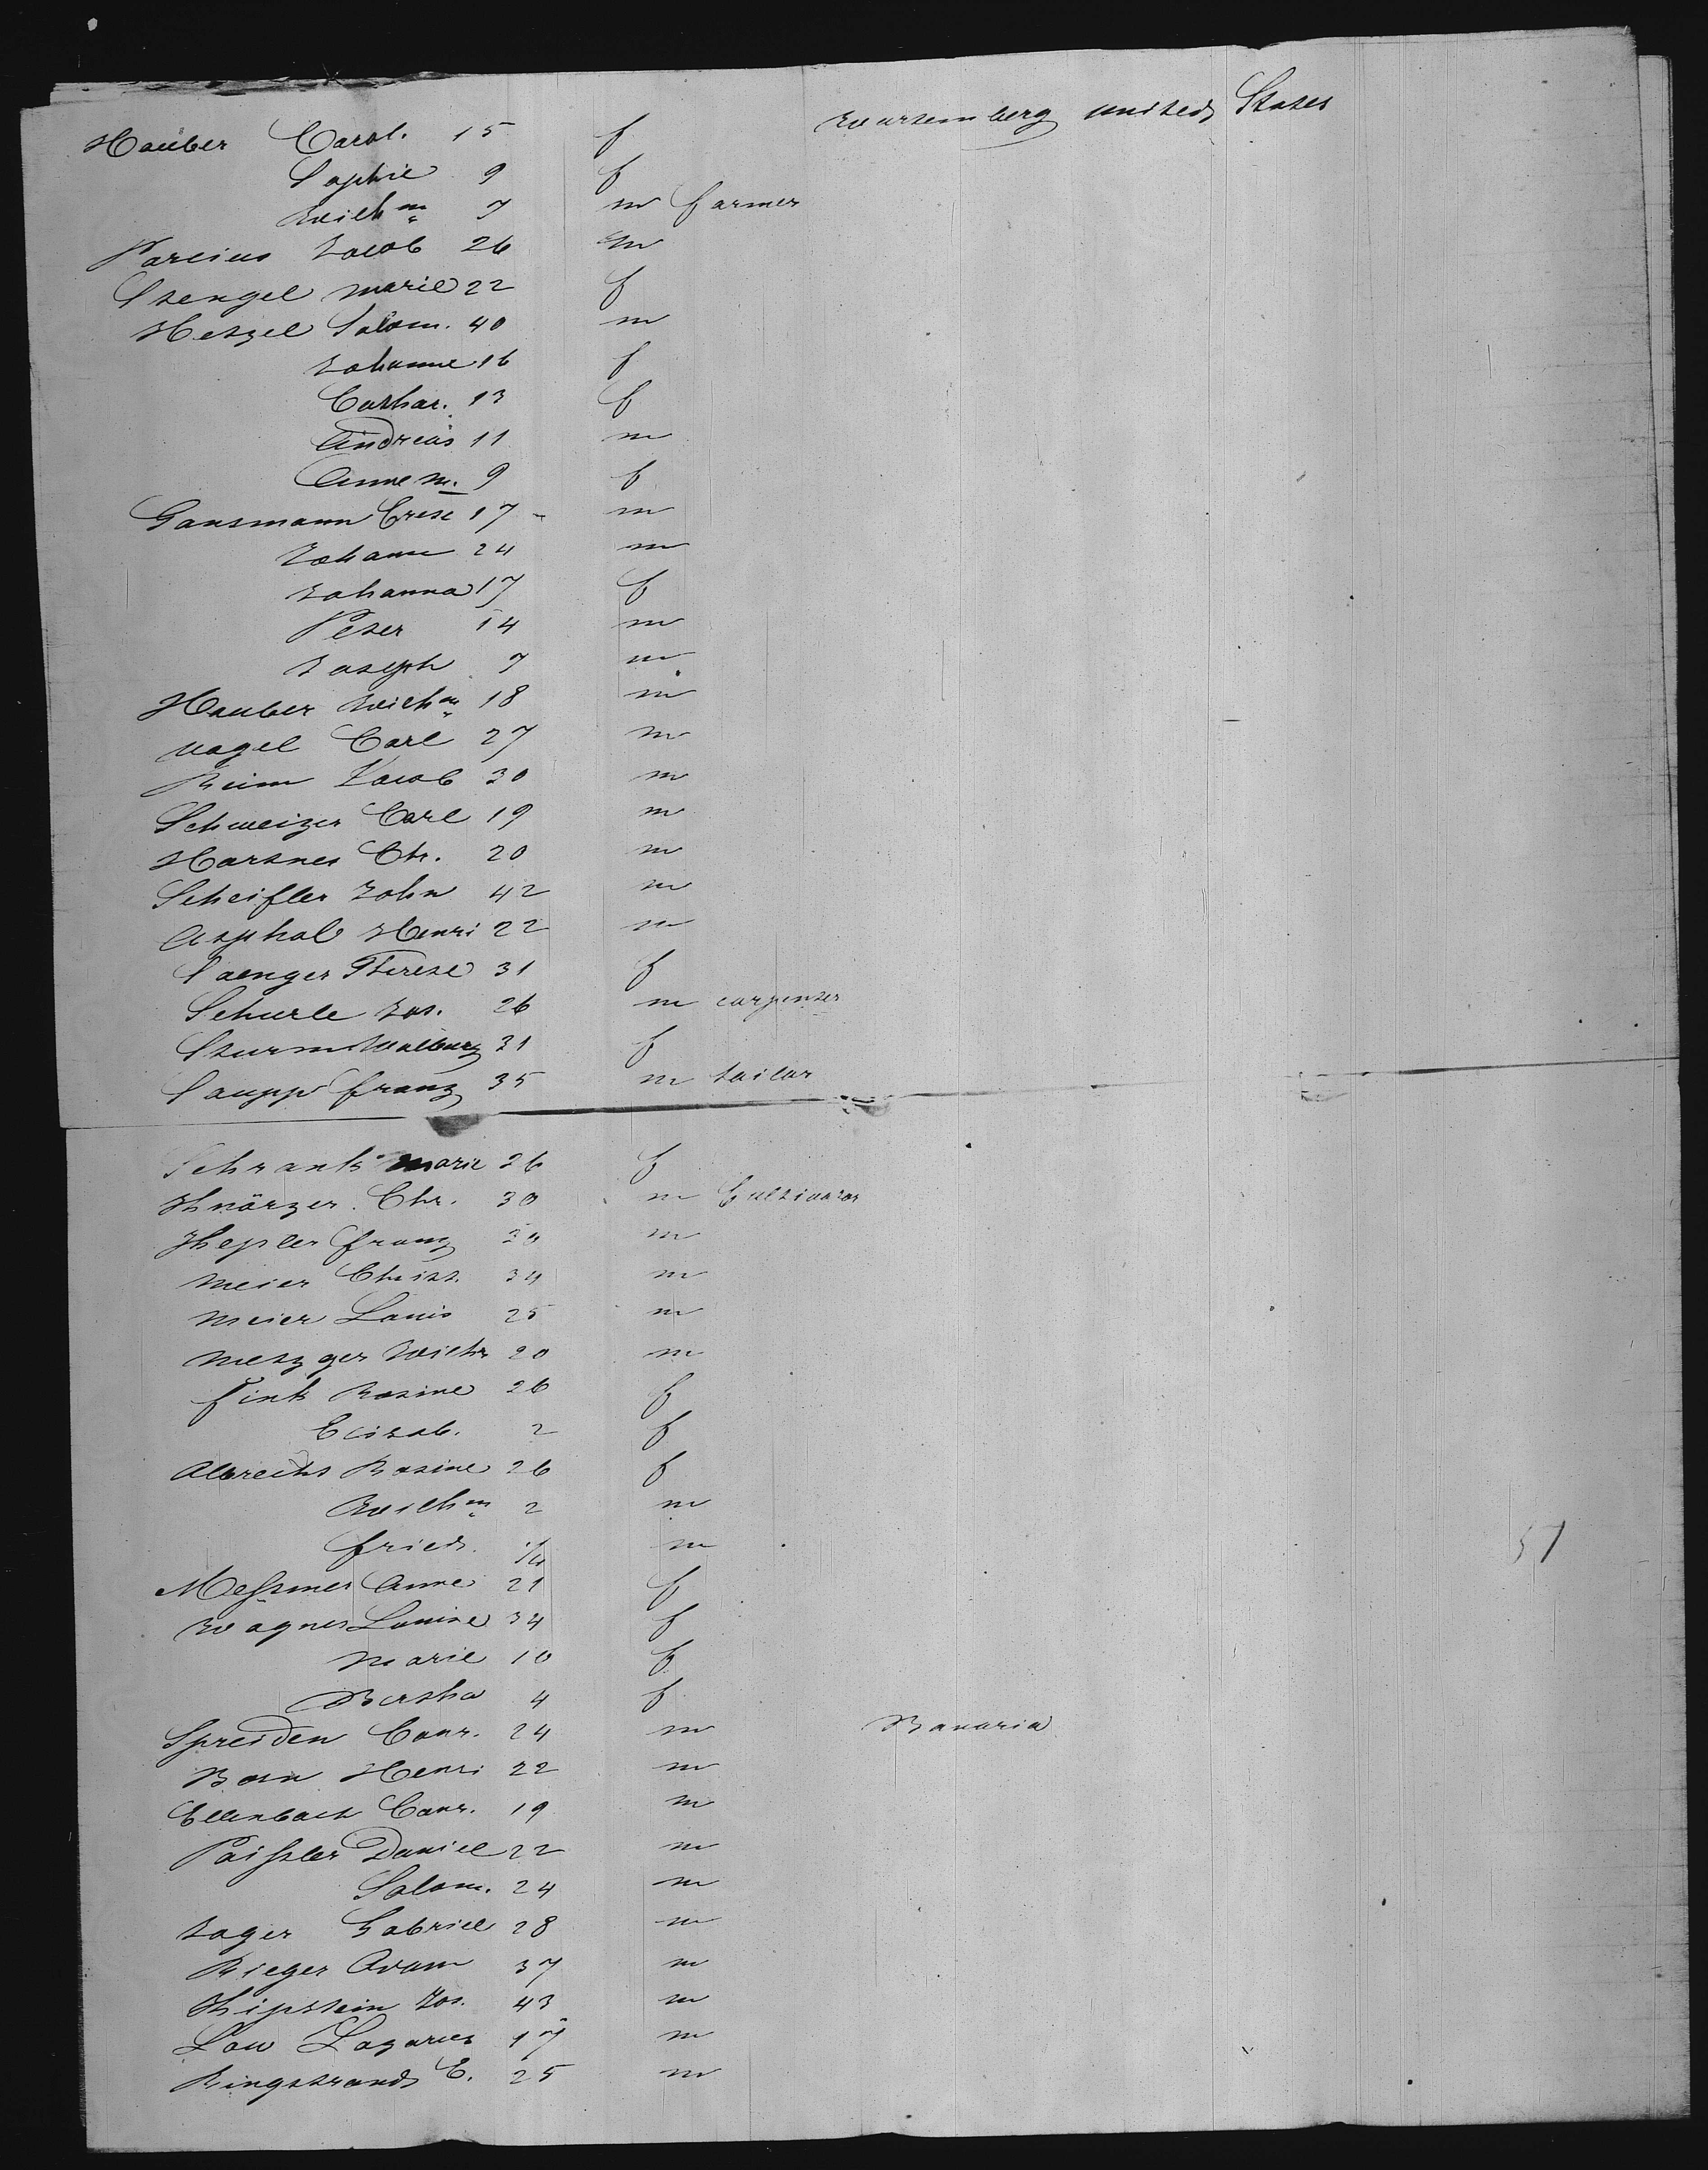 Hauber Carol. 15 f Wurtemberg united States
Sophie 9 f
Wilhm 7 m farmer
Parcius Jacob 26 m
Stengel Marie 22 f
Hetzel Salom. 40 m
Johanne 16 f
Cathar. 13 f
Andreas 11 m
Anne M. 9 f
Gansmann Cresc 17 m
Johann 24 m
Johanna 17 f
Peter 14 m
Joseph 7 m
Hauber Wilhm 18 m
Nagel Carl 27 m
Reim Jacob 30 m
Schweizer Carl 19 m
Hartner Chr. 20 m
Scheifler John 42 m
Asphal Henri 22 m
Saenger Therese 31 f
Schurle Jos. 26 m carpenter
Sturm Walburg 31 f
Saupp Franz 35 m tailor
Schrank Marie 26 f
Knörzer Chr. 30 m Cultivator
Kepler Franz m
Meier Christ. 34 m
Meier Louis 25 m
Metzger Wilh 20 m
Fink Rosine 26 f
Elisab. 2 f
Albrecht Rosine 26 f
Wilhm 2 m
Fried. m
Meßmer Anne 21 f
Wagner Louise 34 f
Marie 10 f
Bertha 4 f
Spreiden Conr. 24 m Bavaria
Born Henri 22 m
Ellenbach Conr. 19 m
Paißler Daniel 22 m
Salom. 24 m
Jager Gabriel 28 m
Rieger Adam 37 m
Kipstein Jos. 43 m
Low Lazarus 17 m
Ringstrand E. 25 m
57